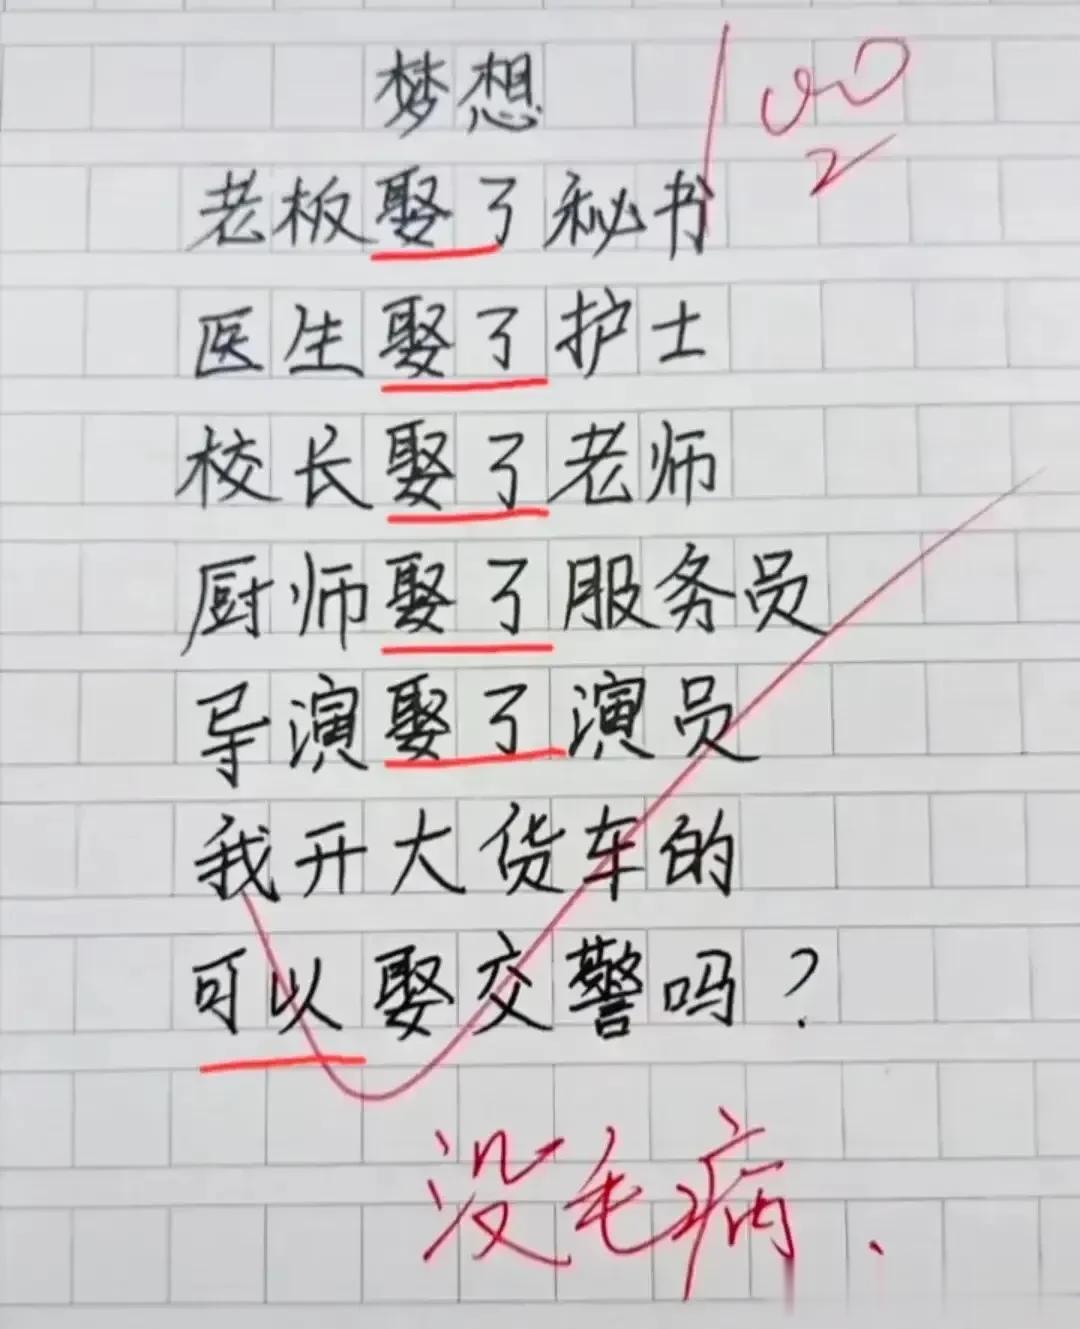 梦想
100
2
老板娶了秘书
医生娶了护士
校长娶了老师
厨师娶了服务员
导演娶了演员
我开大货车的
可以娶交警吗?
没毛病.